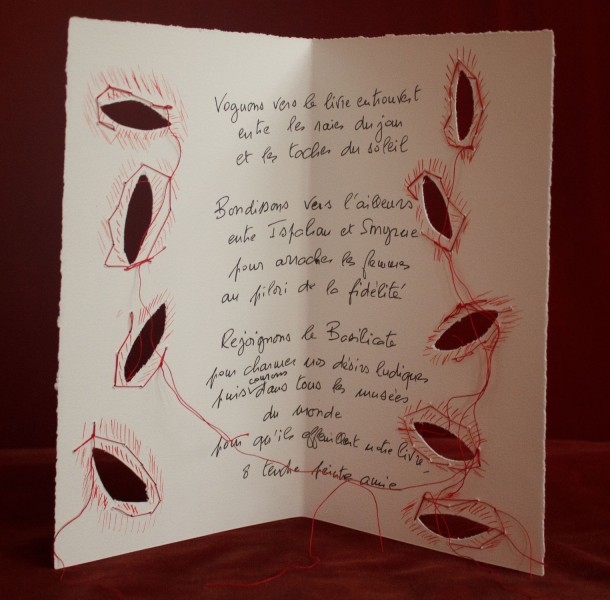 Voguons vers le livre entrouvert
entre les raies du jan
et les taches du soleil
Bondissons vers l'ailleurs
entre Ispahan et Smyrne
pour arracher les femmes
au pilori de la fidélité
Rejoignons la Basilicate
pour charmer nos désirs ludiques
puis courons dans tous les musées
du monde
pour qu'ils effeuillent notre livre,
ô tendre peintre amie